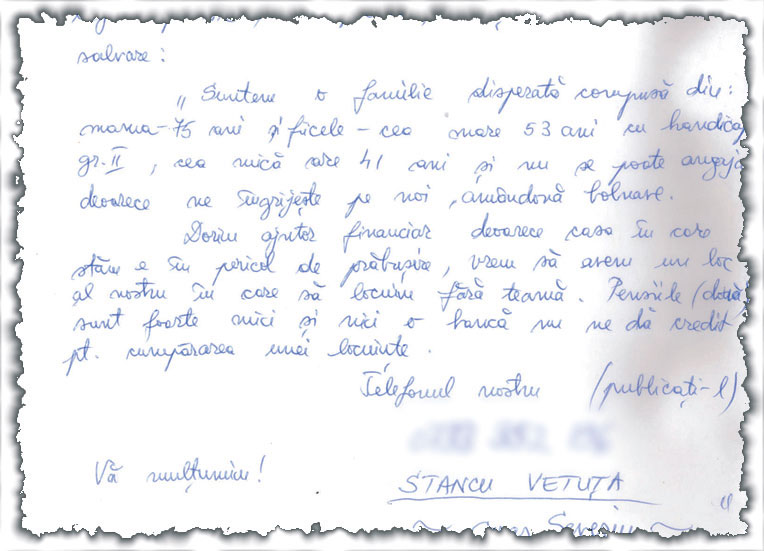 salvare:
„Suntem o familie disperată compusă din:
mama-75 ani și fiicele - cea mare 53 ani cu handicap
gr. II, cea mică are 41 ani și nu se poate angaja
deoarece ne îngrijește pe noi, amândouă bolnave.
Dorim ajutor financiar deoarece casa în care
stăm e în pericol de prăbușire, vrem să avem un loc
al nostru în care să locuim fără teamă. Pensiile (două)
sunt foarte mici și nici o bancă nu ne dă credit
pt. cumpărarea unei locuințe.
Telefonul nostru (publicați-l)
Vă mulțumim!
STANCU VETUȚA
Severin